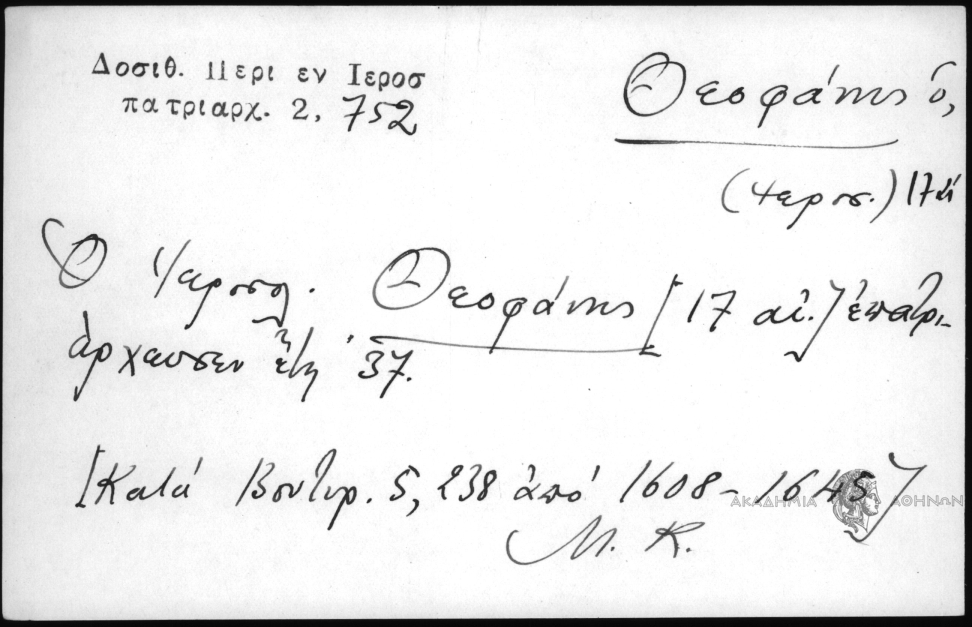 Δοσιθ. Περι εν Ιεροσ
πατριαρχ. 2, 752
Θεοφάνης ὁ,
(Ιερος.) 17 αἰ
Ὁ Ἱεροσολ. Θεοφάνης [17 αἰ.] ἐπατρι-
άρχευσεν ἔτη 37.
[Κατά Βουτυρ. 5, 238 ἀπό 1608-1645]
ΑΚΑΔΗΜΙΑ ΑΘΗΝΩΝ
Μ. Κ.